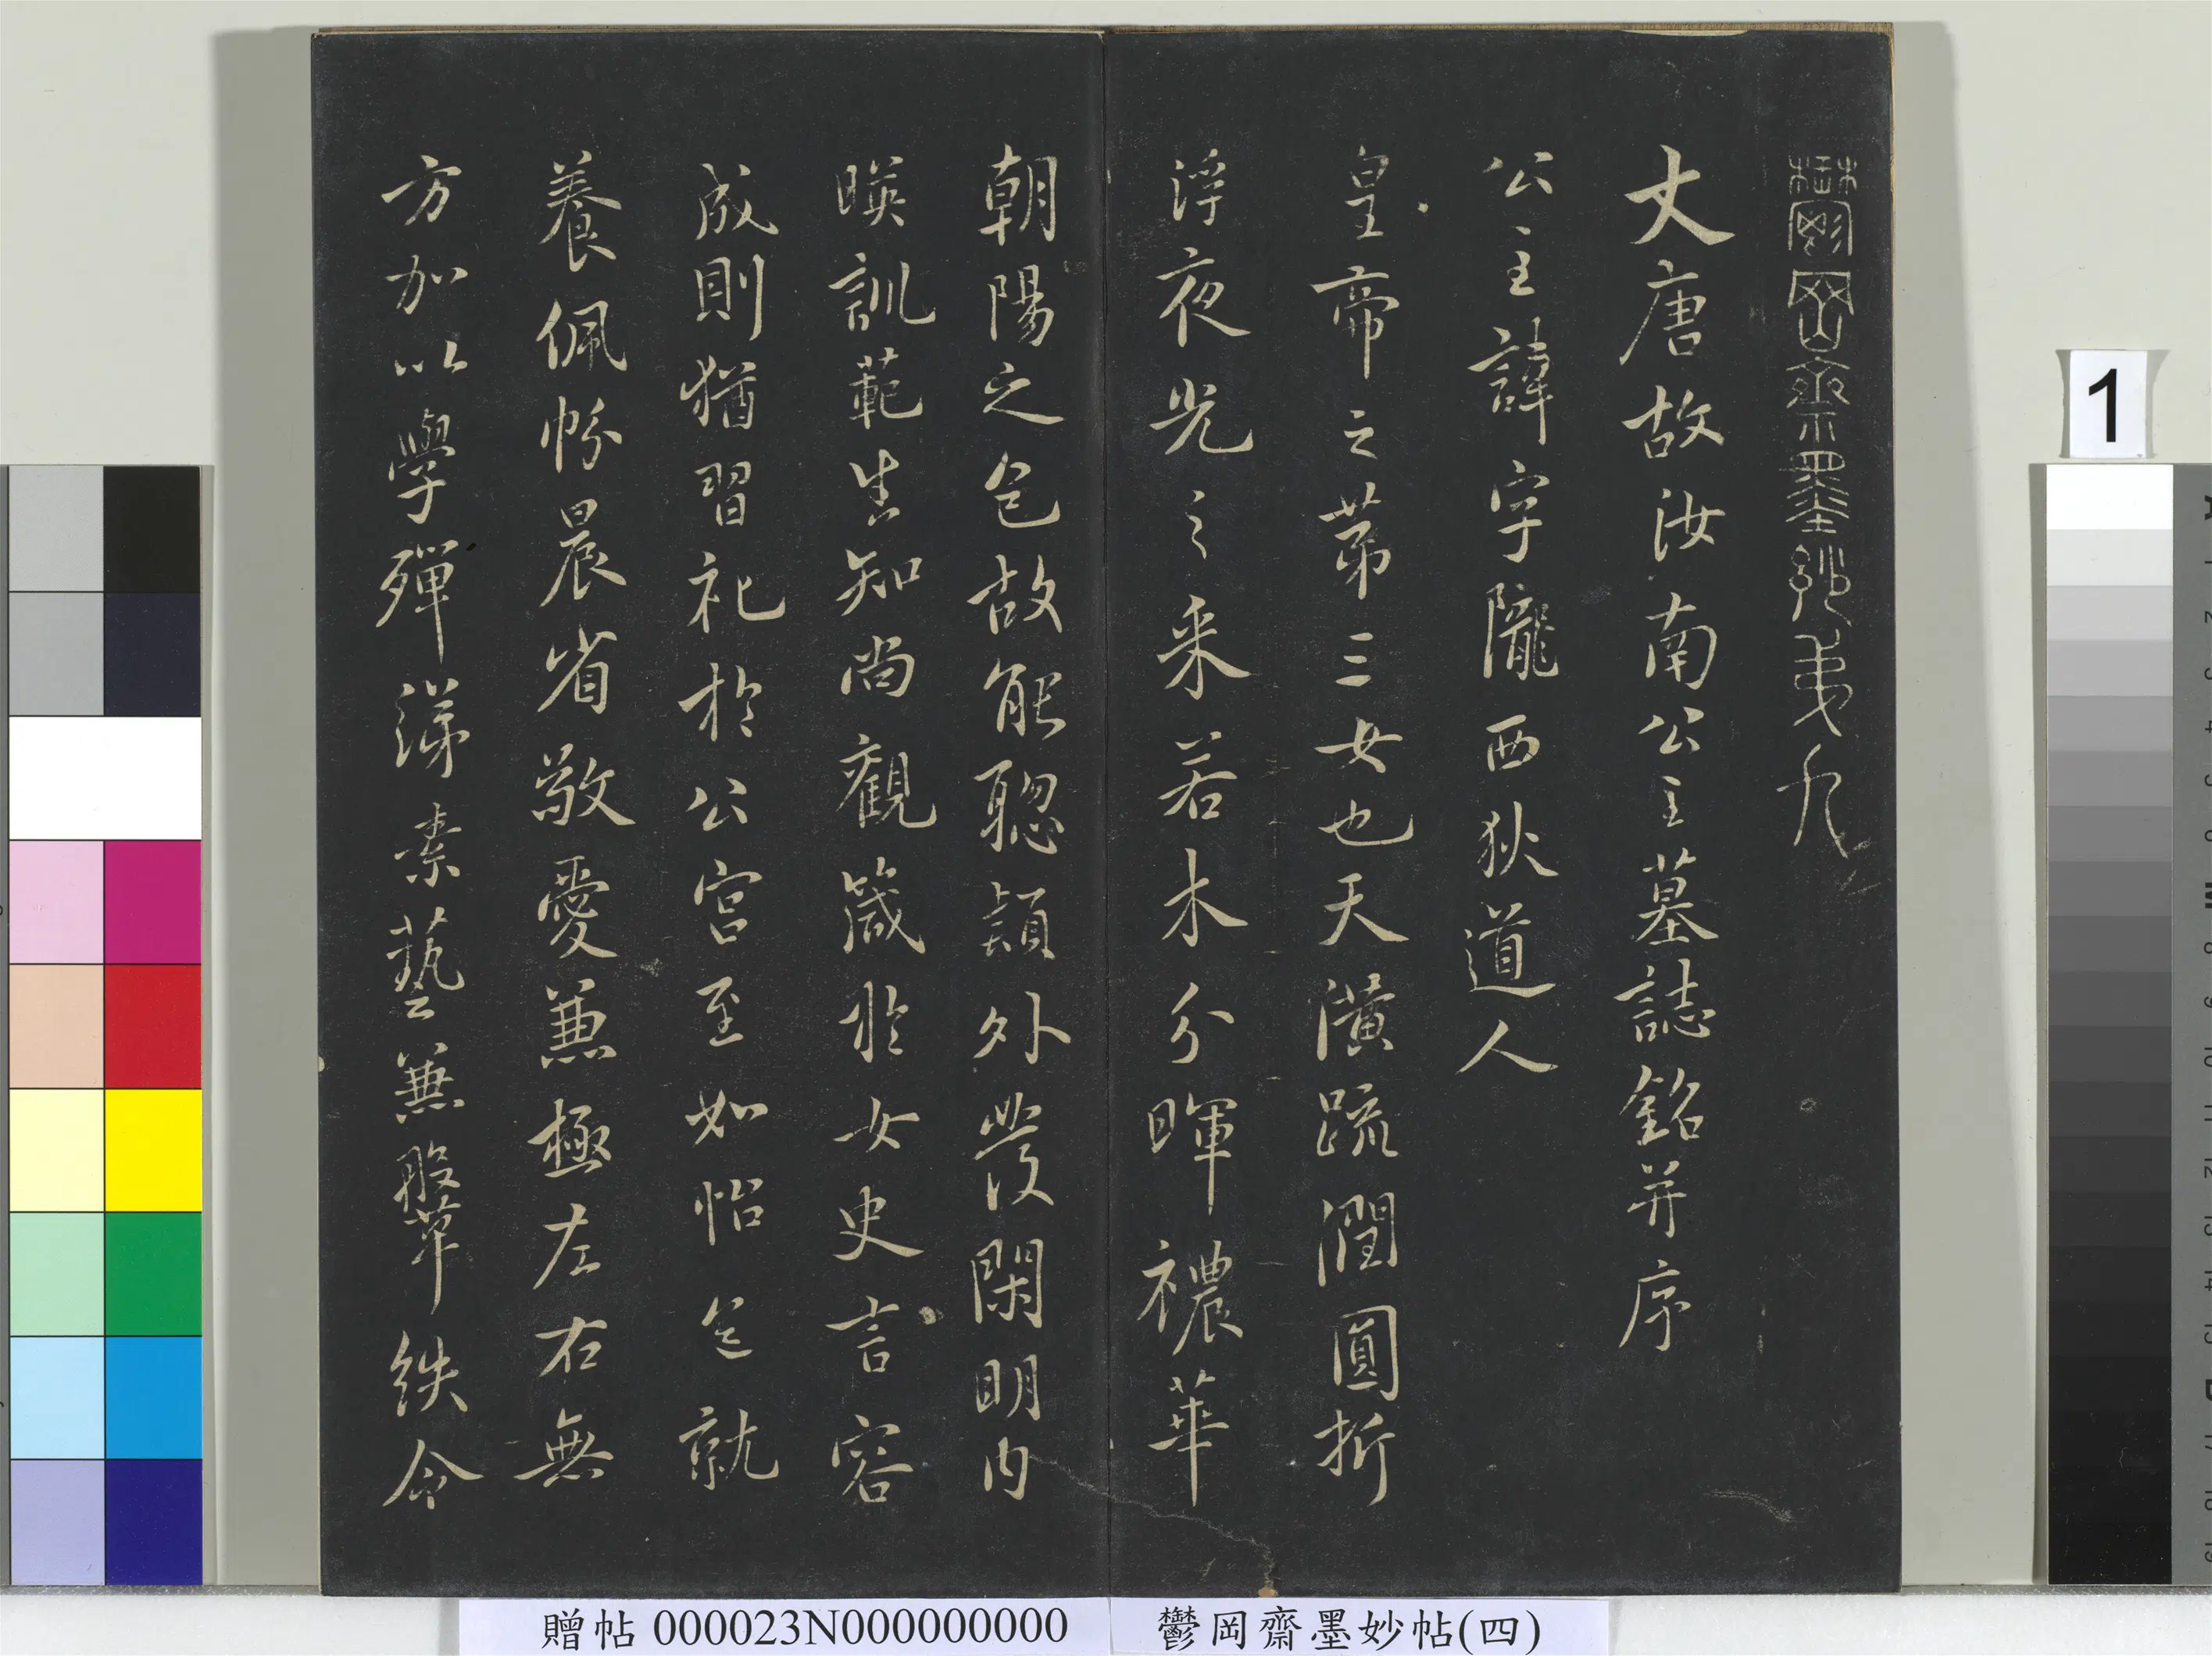 鬱岡齋墨妙第九
大唐故汝南公主墓誌銘并序
公主諱字隴西狄道人
皇帝之第三女也天潢疏潤圓折
浮夜光之采若木分暉襛華
朝陽之色故能聰穎外發閑明內
暎訓範生知尚觀箴於女史言容
成則猶習礼於公宮至如怡色就
養佩帉晨省敬愛兼極左右無
方加以學殫綈素藝兼鞶紩令
贈帖 000023N000000000
鬱岡齋墨妙帖(四)
1